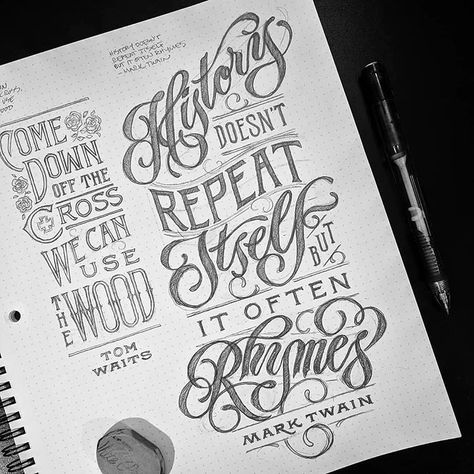 HISTORY DOESN'T
REPEAT ITSELF
BUT IT OFTEN RHYMES
-MARK TWAIN
COME
DOWN
OFF THE
CROSS
WE CAN
USE
THE WOOD
TOM
WAITS
History
DOESN'T
REPEAT
Itself
BUT
IT OFTEN
Rhymes
MARK TWAIN